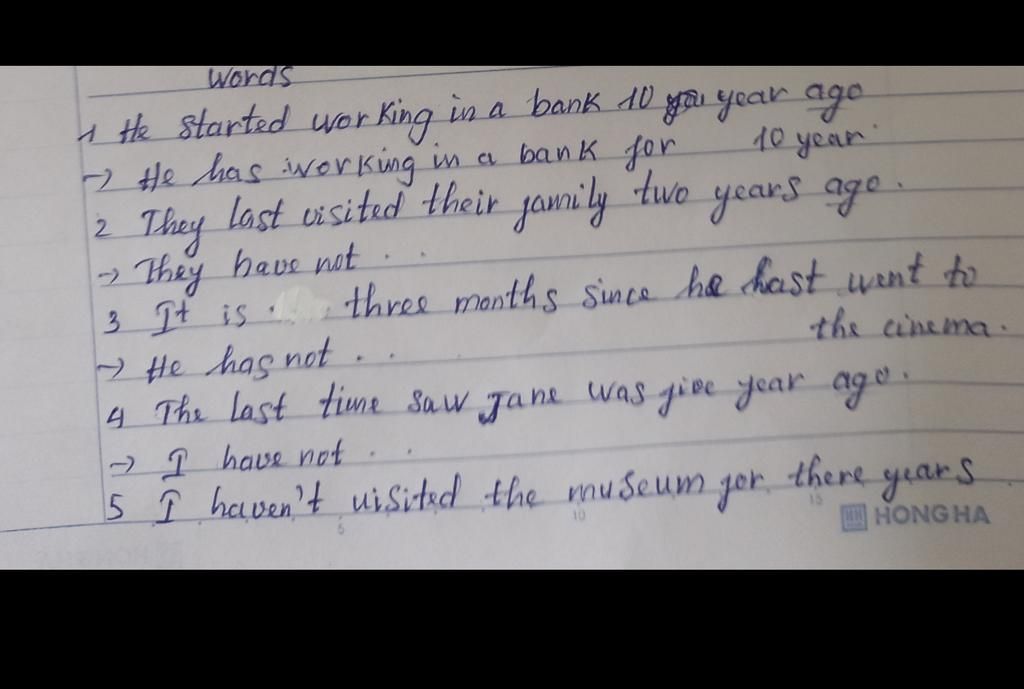 words
1 He started working in a bank 10 year ago
-> He has working in a bank for 10 year.
2 They last visited their jamily two years ago.
-> They have not . .
3 It is three months since he hast went to
the cinema.
-> He has not . . .
4 The last time saw Jane was give year ago.
-> I have not . .
5 I haven't visited the museum jor there years
5 10 15
HONG HA